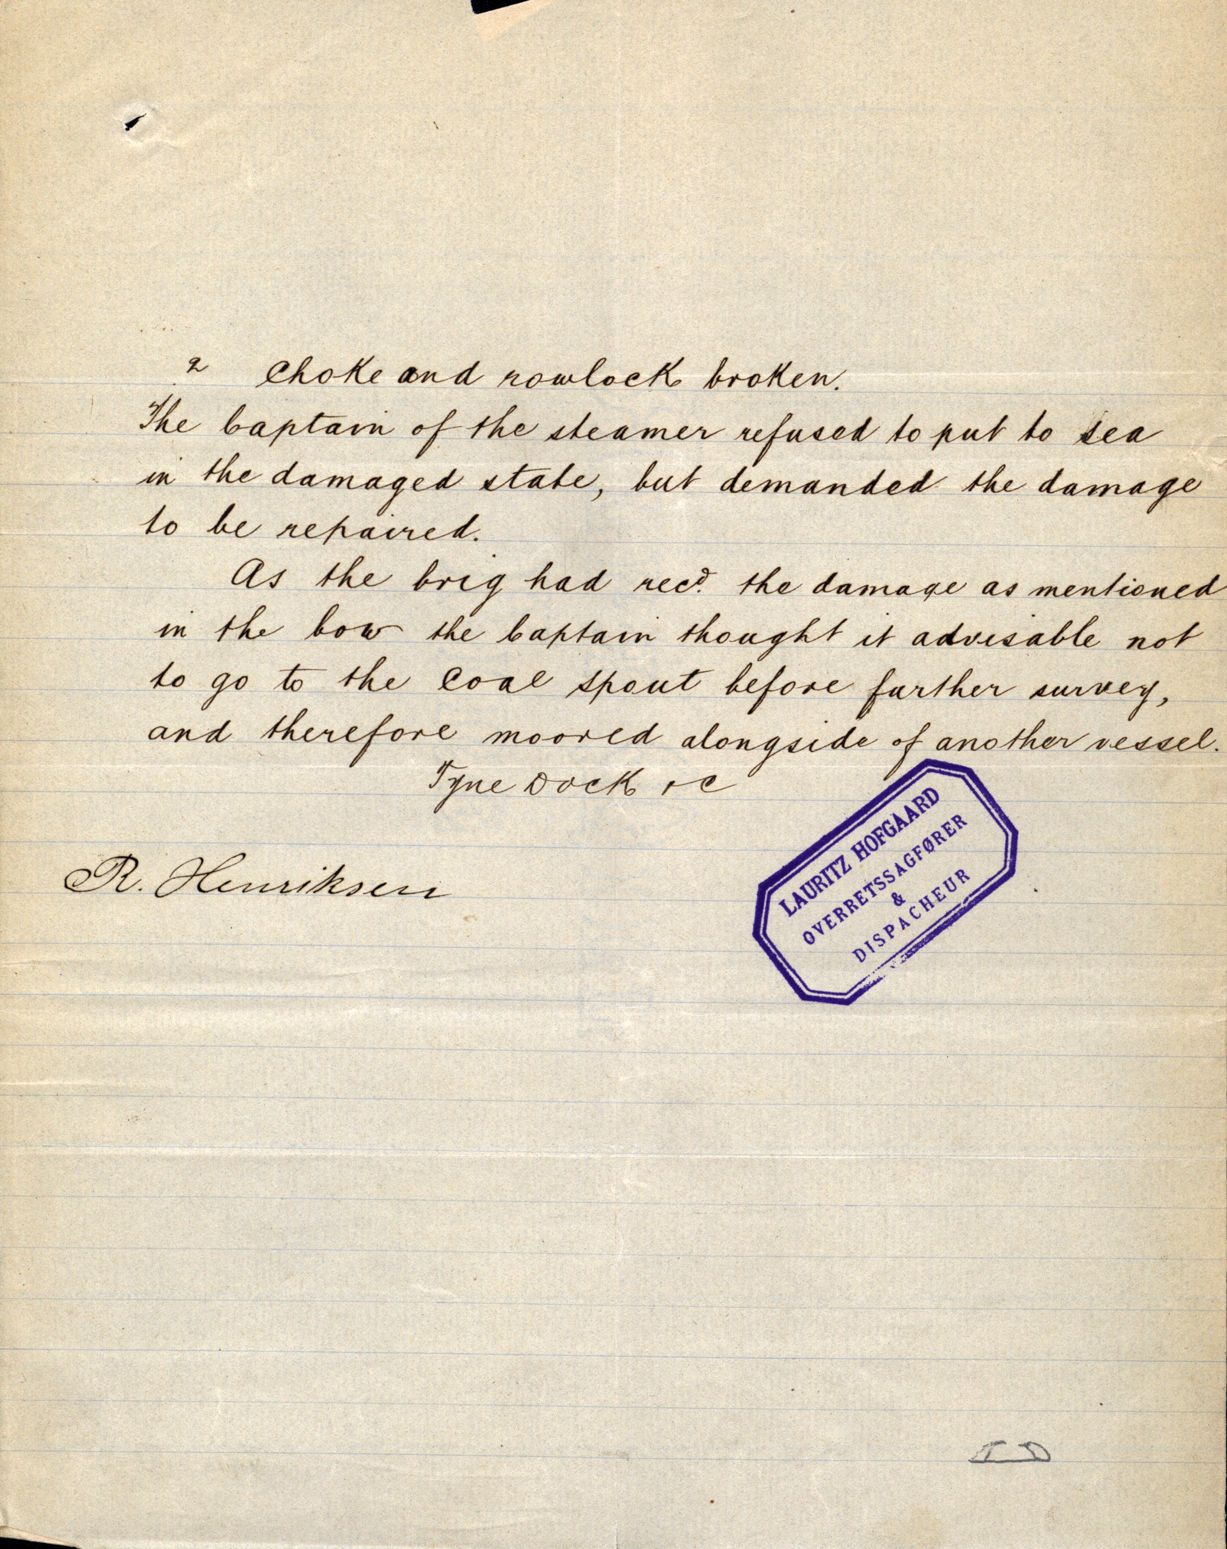 2 Choke and rowlock broken.
The Captain of the steamer refused to put to sea
in the damaged state, but demanded the damage
to be repaired.
As the brig had rec<sup>d</sup>. the damage as mentioned
in the bow the Captain thought it advisable not
to go to the Coal spout before further survey,
and therefore moored alongside of another vessel.
Tyne Dock &c
R. Henriksen
LAURITZ HOFGAARD
OVERRETSSAGFØRER
&
DISPACHEUR